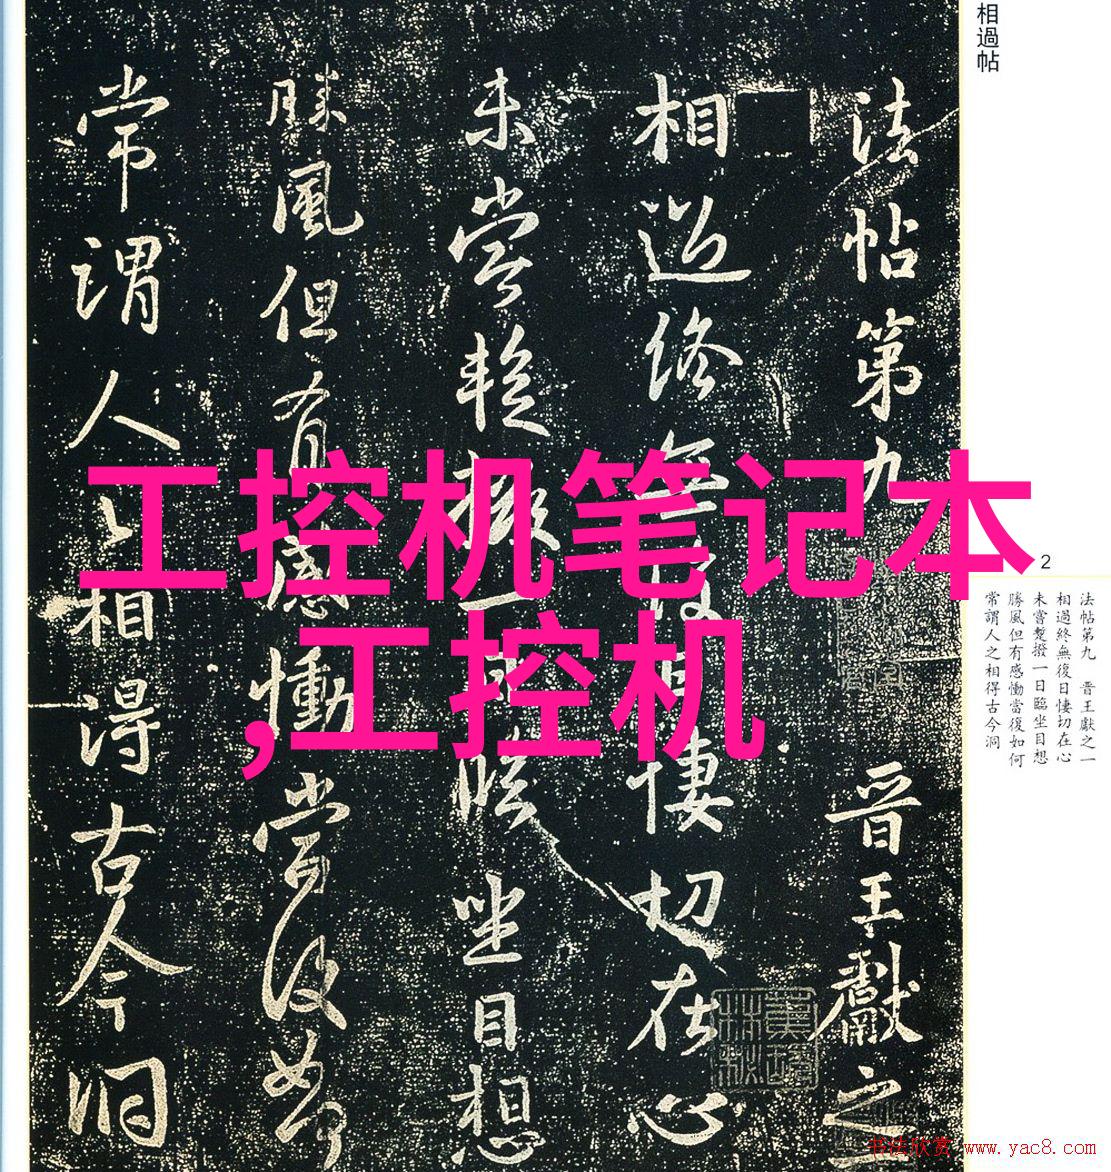 相過帖
法帖第九
晋王獻之
相過終無復日悽切在心
未嘗蹔撥一日臨坐目想
勝風但有感慟當復如何
常謂人之相得古今洞
工控机笔记本
,工控机
2
法帖第九 晋王獻之一
相過終無復日悽切在心
未嘗蹔撥一日臨坐目想
勝風但有感慟當復如何
常謂人之相得古今洞
书法欣赏 www.yac8.com